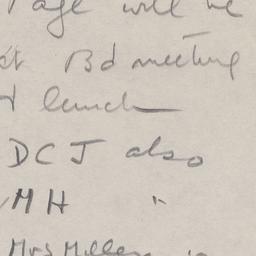 Page will be
Bd meeting
lunch
DCJ also
MH "
Mrs Miller